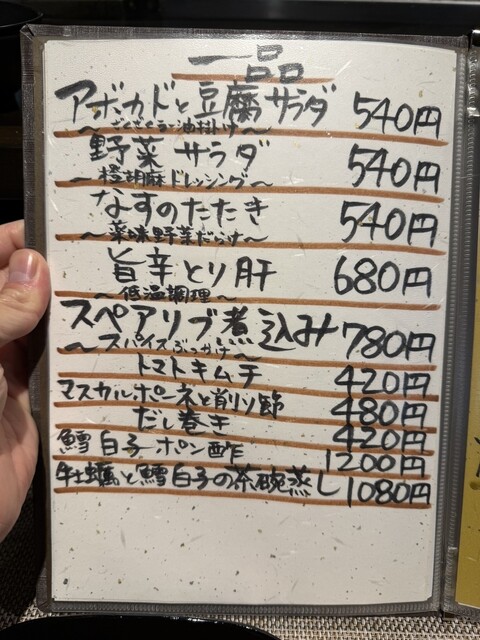 一品
アボカドと豆腐サラダ 540円
〜ざくざくラー油掛け〜
野菜サラダ 540円
〜橙胡麻ドレッシング〜
なすのたたき 540円
〜薬味野菜だらけ〜
旨辛とり肝 680円
〜低温調理〜
スペアリブ煮込み 780円
〜スパイスぶっかけ〜
トマトキムチ 420円
マスカルポーネと削り節 480円
だし巻き 420円
鱈白子ポン酢 1200円
牡蠣と鱈白子の茶碗蒸し 1080円